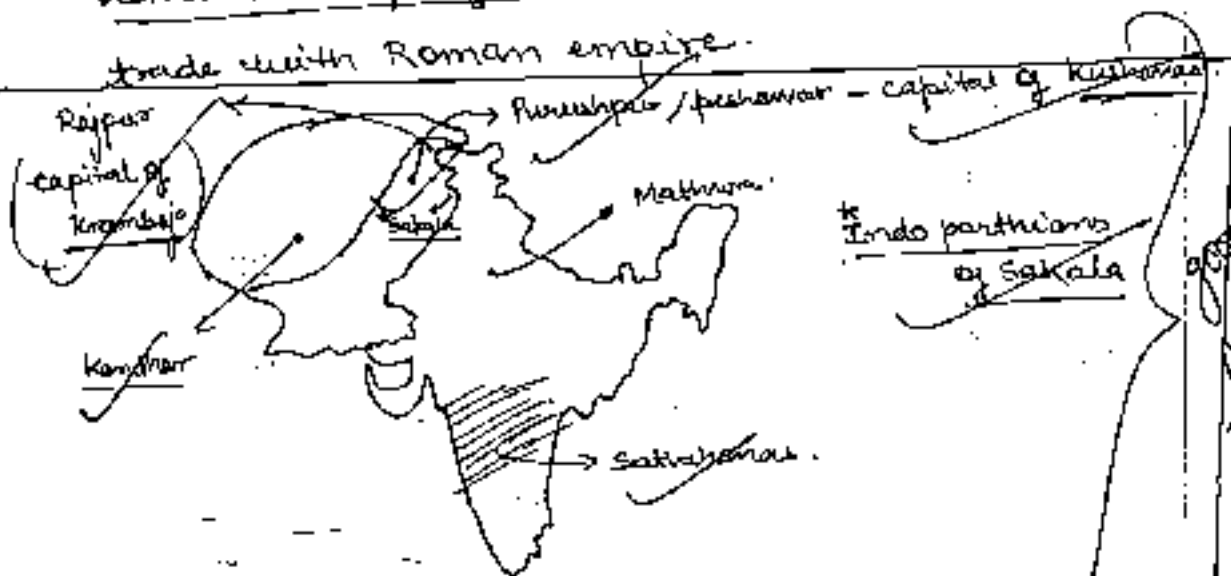 trade with Roman empire.
Rajpur
capital of
Kromboj
Purushpur / peshawar - capital of Kushanas
Mathura.
Sakala
* Indo parthians
of Sakala
Kandhar
Satvahanas.